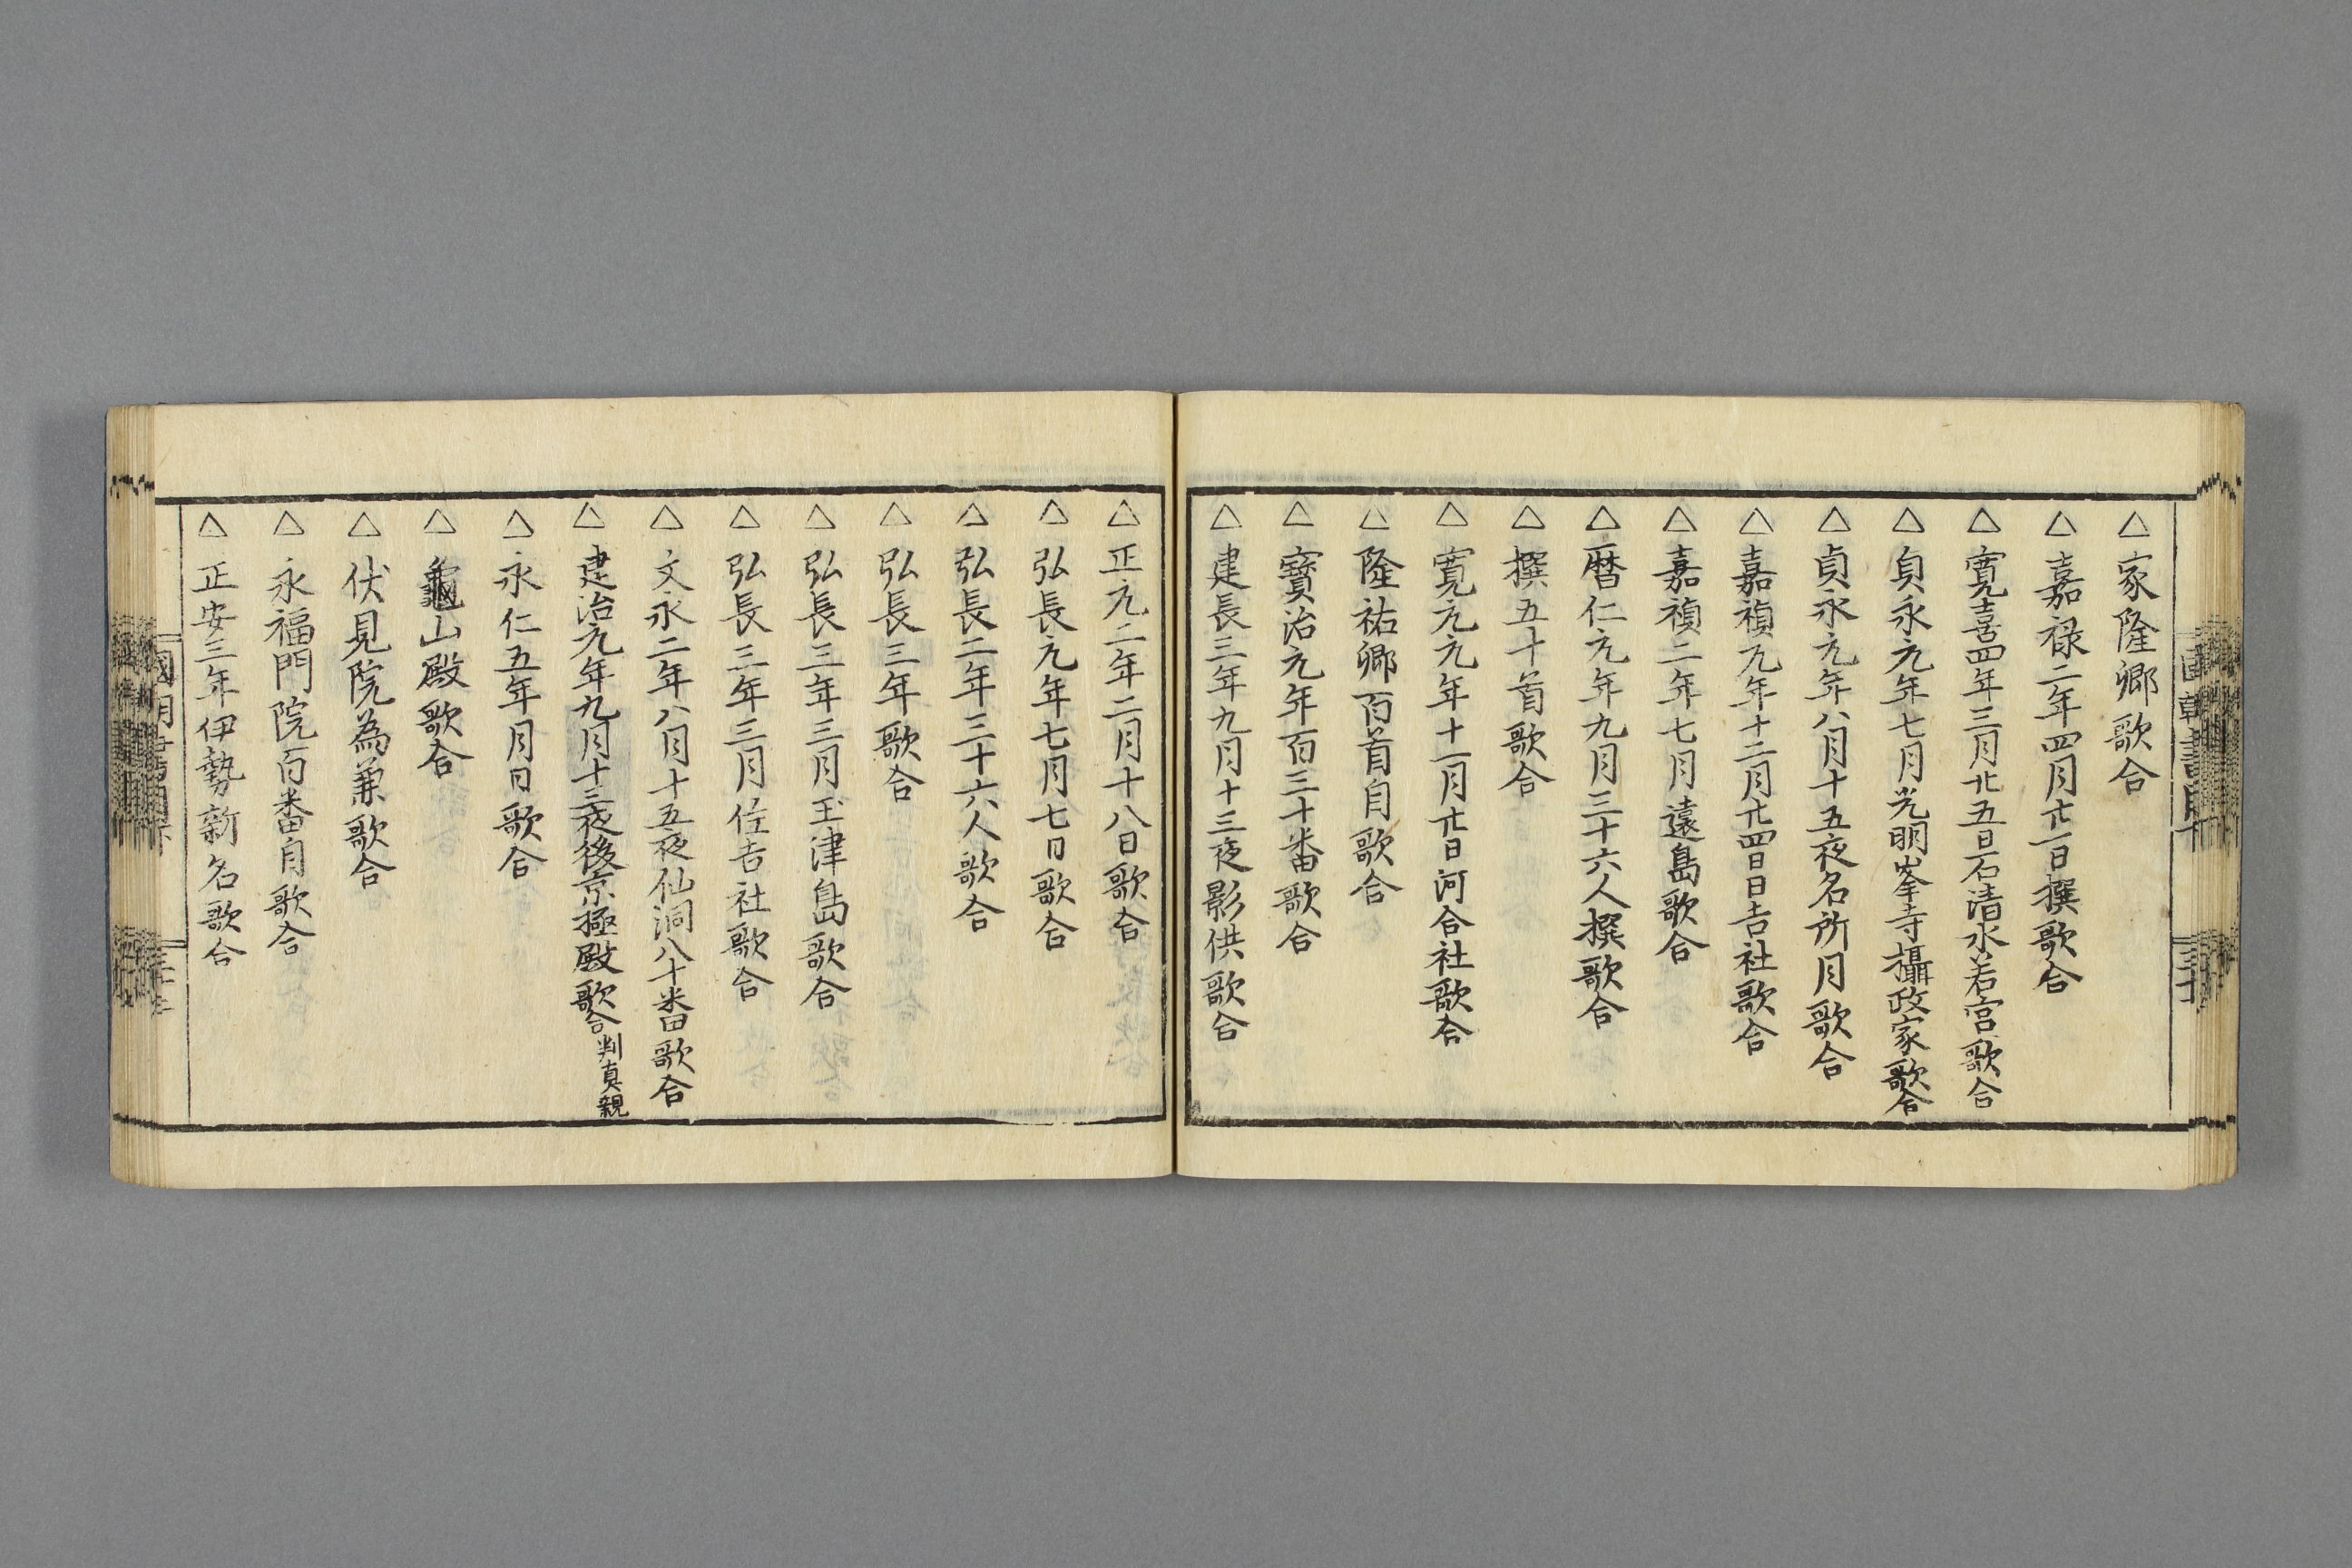 △家隆卿歌合
△嘉禄二年四月廿一日撰歌合
△寛喜四年三月廿五日石清水若宮歌合
△貞永元年七月光明峯寺攝政家歌合
△貞永元年八月十五夜名所月歌合
△嘉禎元年十二月廿四日日吉社歌合
△嘉禎二年七月遠島歌合
△暦仁元年九月三十六人撰歌合
△撰五十首歌合
△寛元元年十一月廿日河合社歌合
△隆祐卿百首自歌合
△寳治元年百三十番歌合
△建長三年九月十三夜影供歌合
△正元二年二月十八日歌合
△弘長元年七月七日歌合
△弘長二年三十六人歌合
△弘長三年歌合
△弘長三年三月玉津島歌合
△弘長三年三月住吉社歌合
△文永二年八月十五夜仙洞八十番歌合
△建治元年九月十三夜後京極殿歌合判真親
△永仁五年月日歌合
△龜山殿歌合
△伏見院為兼歌合
△永福門院百番自歌合
△正安三年伊勢新名歌合